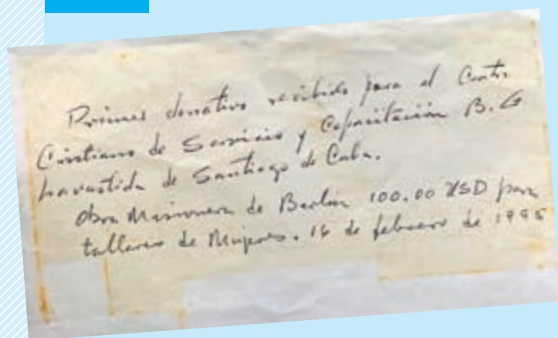 Primer donativo recibido para el Centro
Cristiano de Servicio y Capacitación B. G
Lavastida de Santiago de Cuba.
Obra Misionera de Berlin 100.00 USD para
talleres de Mujeres. 16 de febrero de 1995